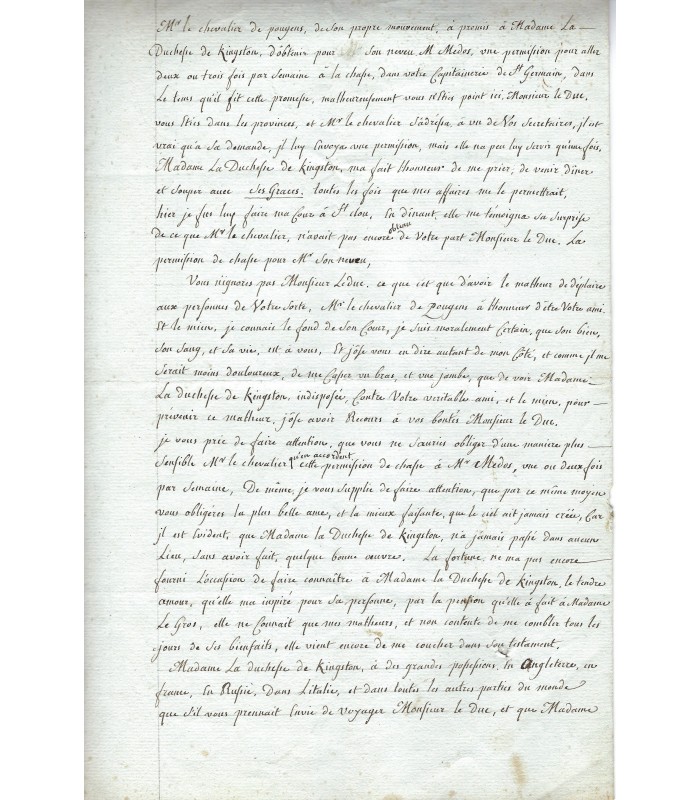 Mr. le chevalier de pougens, de son propre mouvement, à promis à Madame La
Duchesse de Kingston, d'obtenir pour son neveu M. Medos, vne permission pour aller
deux ou trois fois par Semaine à la chasse, dans votre Capitainerie de St Germain, dans
Le tems qu'il fit cette promesse, malheureusement vous n'Etiés point ici, Monsieur le Duc,
vous Etiés dans les provinces, et Mr. le chevalier S'adressa à vn de Vos Secretaires, il est
vrai qu'a Sa demande, il luy Envoya vne permission, mais elle n'a peu luy Servir qu'une fois,
Madame La Duchesse de Kingston, m'a fait Honneur de me prier, de venir dîner
et Souper avec Ses Graces, toutes les fois que mes affaires me le permettrait,
hier je fus luy faire ma Cour à St. clou, En dînant, elle me témoigna Sa Surprise
de ce que Mr. le chevalier, n'avait pas encore obtenu de Votre part Monsieur le Duc, La
permission de chasse pour Mr. Son neveu,
Vous n'ignores pas Monsieur Le Duc, ce que c'est que d'avoir le malheur de déplaire
aux personnes de Votre Sorte, Mr. le chevalier de Pougens à Honneur d'être Votre ami
Et le mien, je connais le fond de Son Cœur, je Suis moralement Certain, que Son bien,
Son Sang, et Sa vie, est à vous, Et j'ôse vous en dire autant de mon Côté, et comme il me
Serait moins douloureux, de me Casser vn bras, et vne jambe, que de voir Madame
La duchesse de Kingston, indisposée, Contre Votre veritable ami, et le mien, pour
prévenir ce malheur, j'ôse avoir Recours à vos bontés Monsieur le Duc,
je vous prie de faire attention, que vous ne Sauriés obliger d'une manière plus
Sensible Mr. le chevalier qu'en accordent cette permission de chasse à Mr. Medos, vne ou deux fois
par Semaine, De même, je vous Supplie de faire attention, que par ce même moyen
vous obligéres la plus belle ame, et la mieux faisante, que le ciel ait jamais créé, Car
il est Evident, que Madame la Duchesse de Kingston, n'a jamais passé dans aucun
Lieu, Sans avoir fait, quelque bonne œuvre. La fortune, ne m'a pas encore
fourni L'occasion de faire connaître à Madame la Duchesse de Kingston, le tendre
amour, qu'elle m'a inspiré pour Sa personne, par la pension qu'elle à fait à Madame
Le Gros, elle ne Connait que mes malheurs, et non contente de me combler tous les
jours de Ses bienfaits, elle vient encore de me coucher dans Son testament,
Madame La duchesse de Kingston, à des grandes possessions, En Angleterre, en
france, En Russie, Dans L'italie, et dans toutes les autres parties du monde
que S'il vous prennait Envie de voyager Monsieur le Duc, et que Madame